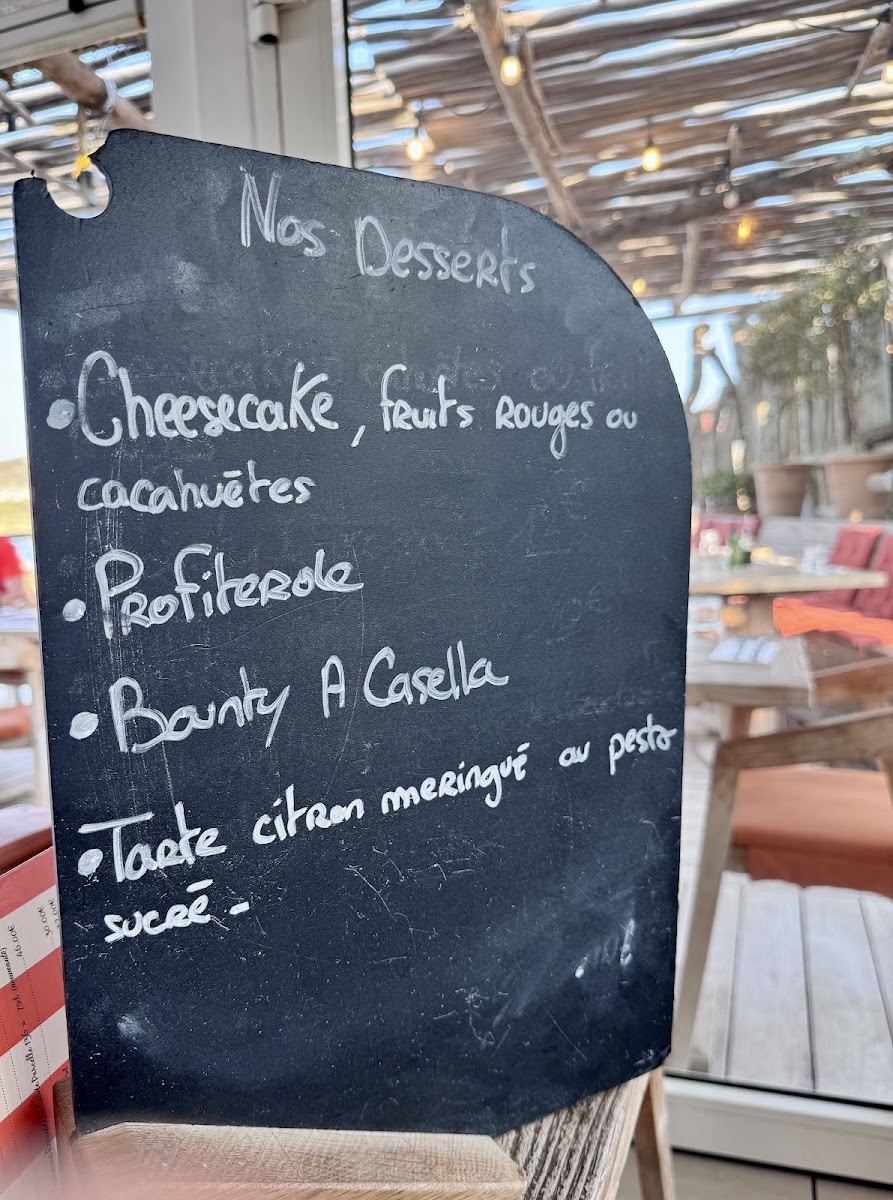 Nos Desserts
• Cheesecake, fruits rouges ou
cacahuētes
• Profiterole
• Bounty A Casella
• Tarte citron meringué au pesto
sucré -
75cl (magnum)
46.00€
50.00€